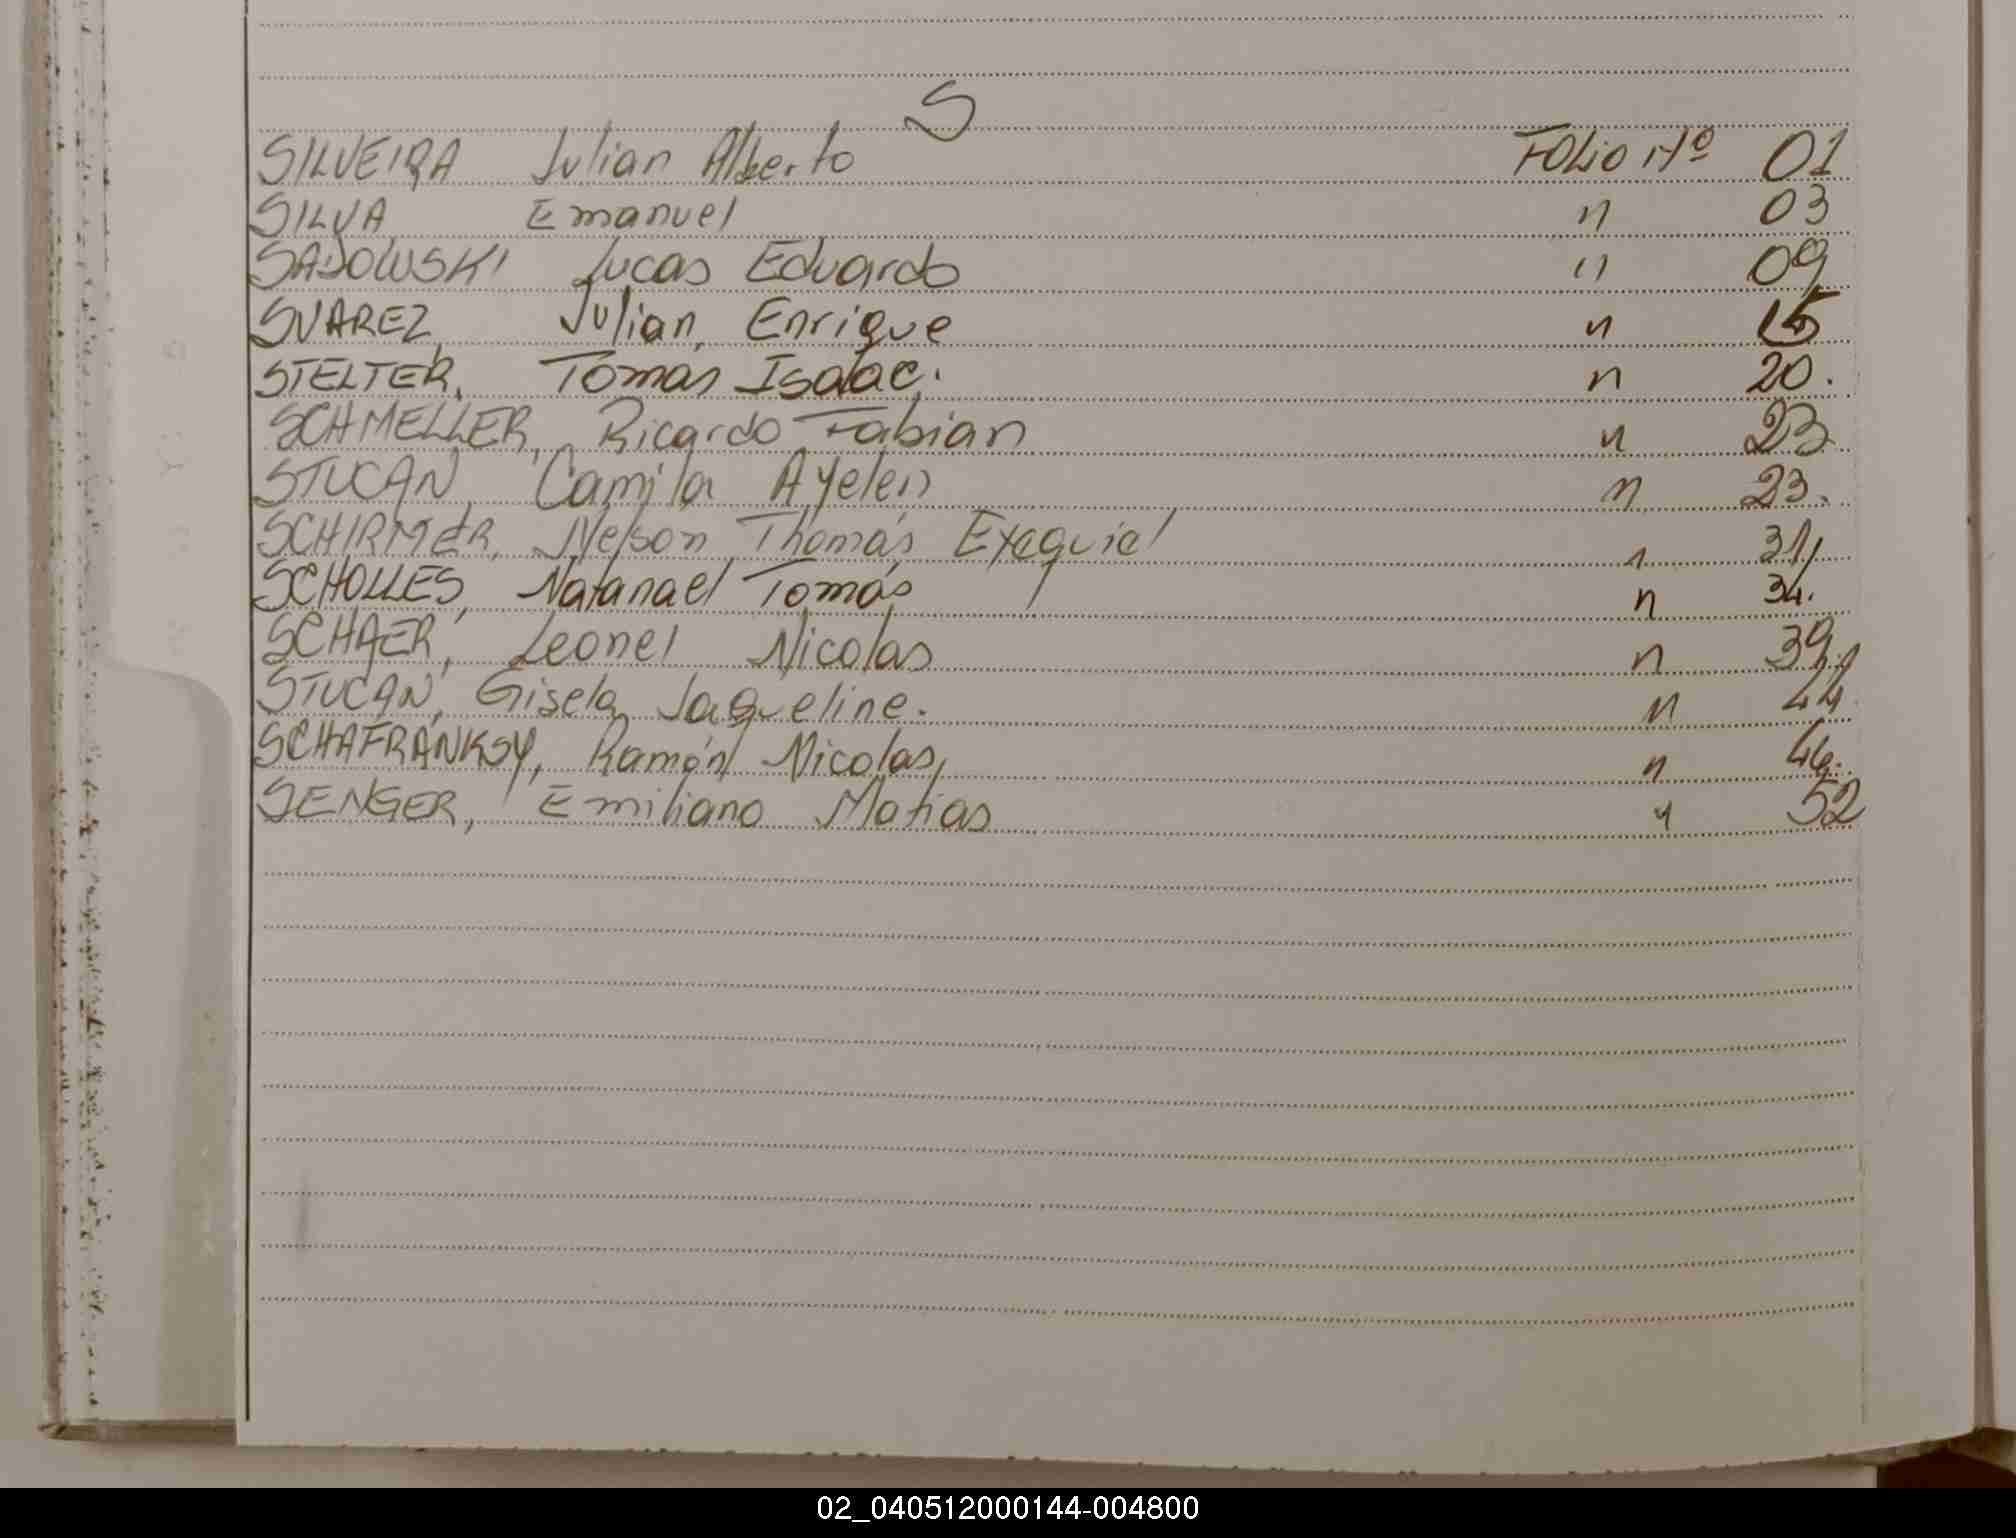 S
SILVEIRA Julian Alberto Folio Nº 01
SILVA Emanuel " 03
SADOWSKI Lucas Eduardo " 09
SUAREZ, Julian, Enrique " 15
STELTER, Tomas Isaac. " 20.
SCHMELLER, Ricardo Fabian " 23.
STUCAN, Camila Ayelen " 23.
SCHIRMER, Nelson Thomás Exequiel " 31,
SCHOLLES, Natanael Tomás " 34.
SCHAER, Leonel Nicolas " 39,
STUCAN, Gisela Jaqueline. " 44.
SCHAFRANKSY, Ramón Nicolas, " 46.
SENGER, Emiliano Matias " 52
02_040512000144-004800